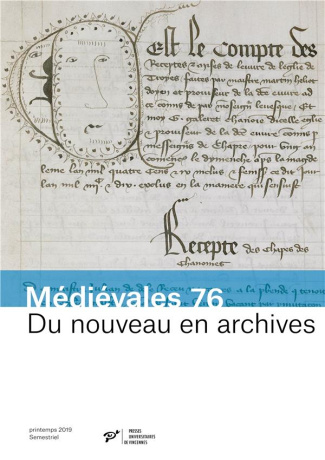 Cest le Compte des
Receptes & mises de leuure de leglise de
Troyes faites par maistre martin
doyen et prouiseur de la de euure
ad ce comis de par messeigneurs leuesque Et
moy G. galeret chanoine dicelle eglise
& prouiseur de la de euure comis p
messeigns de Chapre pour Ung an
comencet le dimenche aps la magde
leme lan mil quatre Cens & inclus & feniss ce dit Jour
lan mil iiijc & dix exclus en la maniere qui sensuist
Recepte des Chapes des
Chanoines
Médiévales 76
Du nouveau en archives
printemps 2019
Semestriel
PRESSES
UNIVERSITAIRES
DE VINCENNES